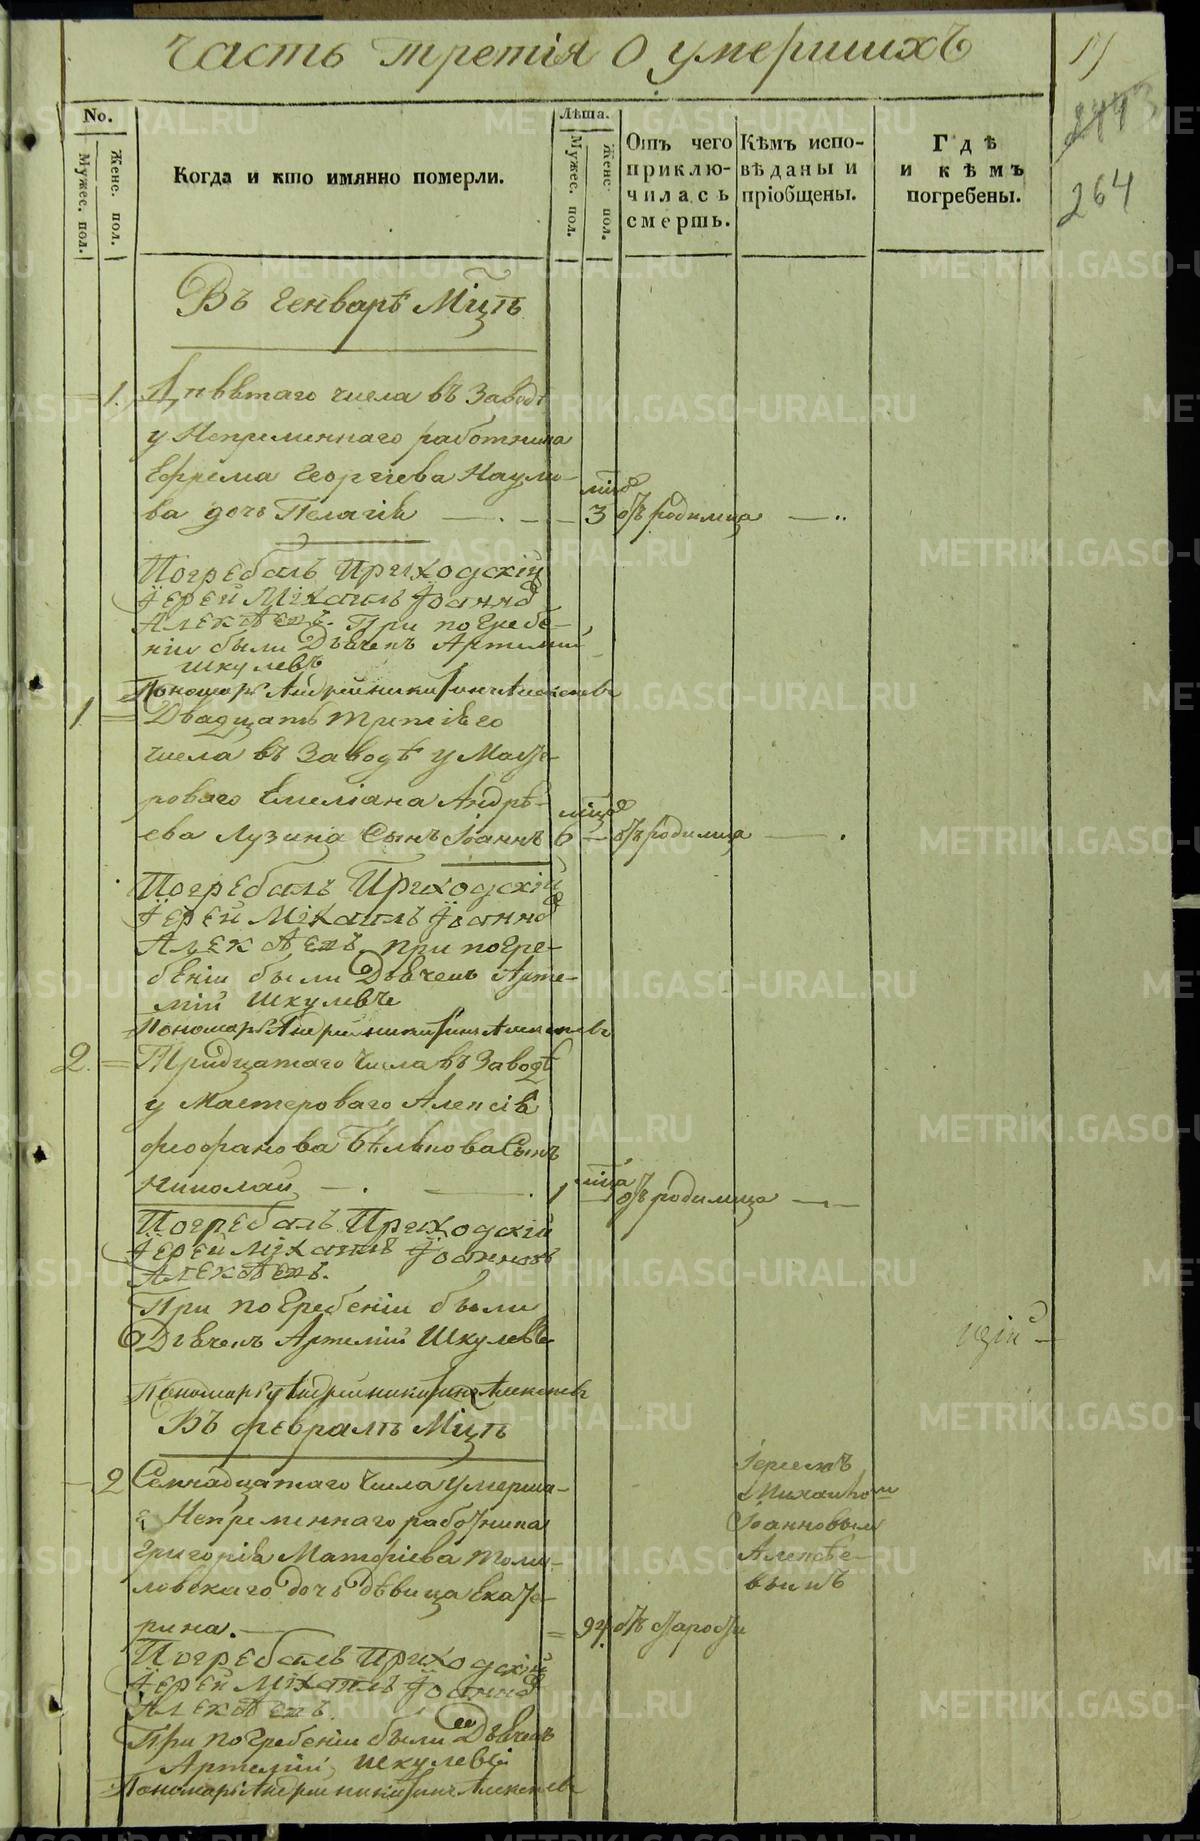 Часть третія О умершихъ
17
2443
264
No.
Мужес. пол.
Женс. пол.
Когда и кто имянно померли.
Лѣта.
Мужес. пол.
Женс. пол.
Отъ чего приклю-
чилась смерть.
Кѣмъ испо-
вѣданы и
пріобщены.
Гдѣ
и кѣмъ
погребены.
Въ Генварѣ Мцѣ
1. числа въ Заводѣ
у Непременнаго работника
Ефрема Георгіева Наули-
ва дочь Пелагія 3 отъ родимца
Погребалъ Приходскій
Іерей Михаилъ Іоанновъ
Алексѣевъ. При погребе-
ніи были Дьячекъ Артемий
Шкулевъ
Пономарь Андрей Никитинъ Алексѣевъ
1 Двадцать третіяго
числа въ Заводѣ у Масте-
роваго Емеліана Андрѣ-
ева Лузина Сынъ Іоаннъ 6 отъ родимца
Погребалъ Приходскій
Іерей Михаилъ Іоанновъ
Алексѣевъ при погре-
бѣніи были Дьячекъ Арте-
мій Шкулевъ
Пономарь Андрей Никитинъ Алексѣевъ
2. Тридцатаго числа въ Заводѣ
у Мастероваго Алексія
Феофанова Бѣлькова Сынъ
Николай 1 отъ родимца
Погребалъ Приходскій
Іерей Михаилъ Іоанновъ
Алексѣевъ.
При погребеніи были
Дьячекъ Артемій Шкулевъ
Пономарь Андрей Никитинъ Алексѣевъ
Въ февралѣ Мцѣ
2 Семнадцатаго числа умерша-
я Непременнаго работника
Григорія Матфіева
дочь дѣвица Екате-
рина. 94. отъ старости
Іереемъ
Михаило
Іоанновым
Алексѣе-
вымъ
Погребалъ Приходскій
Іерей Михаилъ Іоанновъ
Алексѣевъ.
При погребеніи были Дьячекъ
Артемій Шкулевъ
Пономарь Андрей Никитинъ Алексѣевъ
METRIKI.GASO-URAL.RU